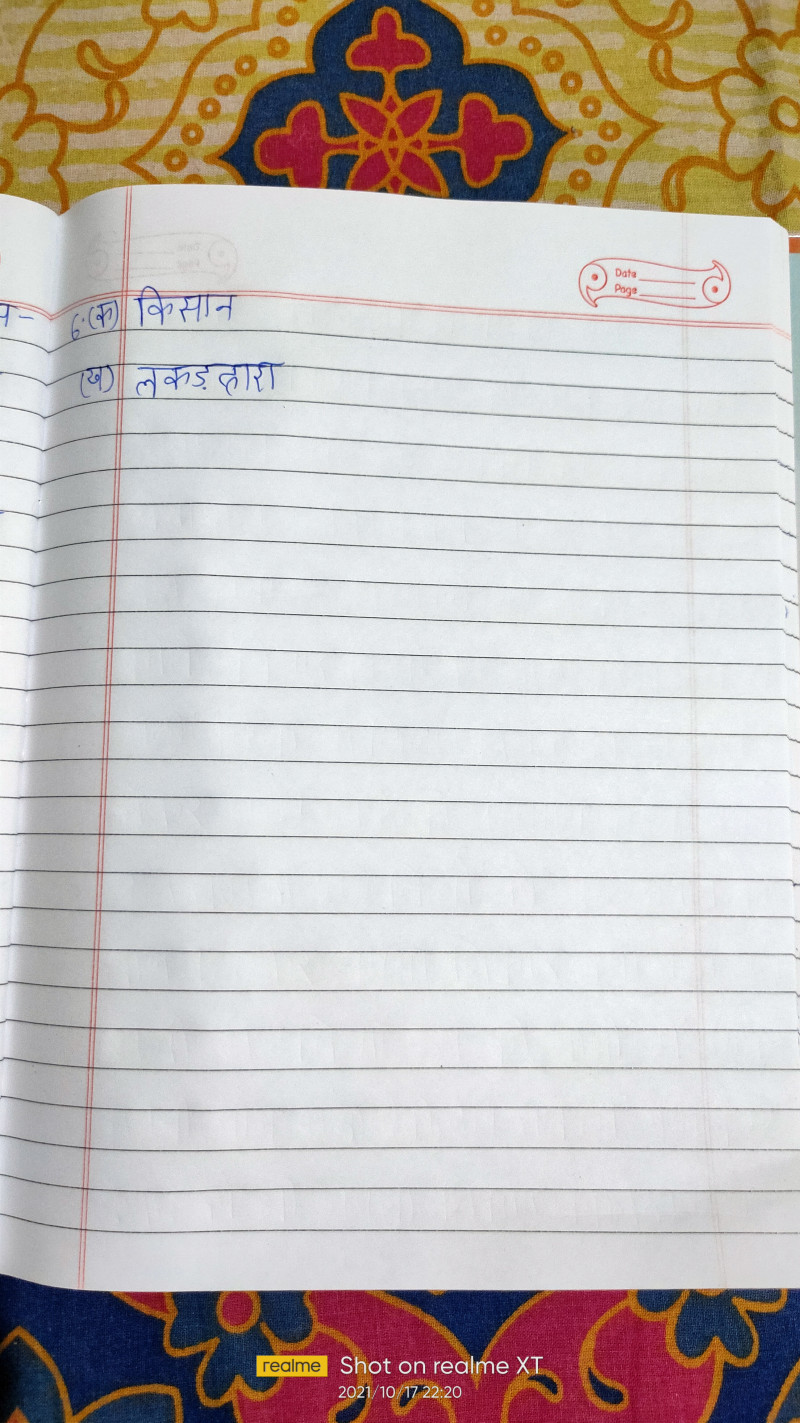 Date
Page
6.(क) किसान
(ख) लकड़हारा
realme Shot on realme XT
2021/10/17 22:20